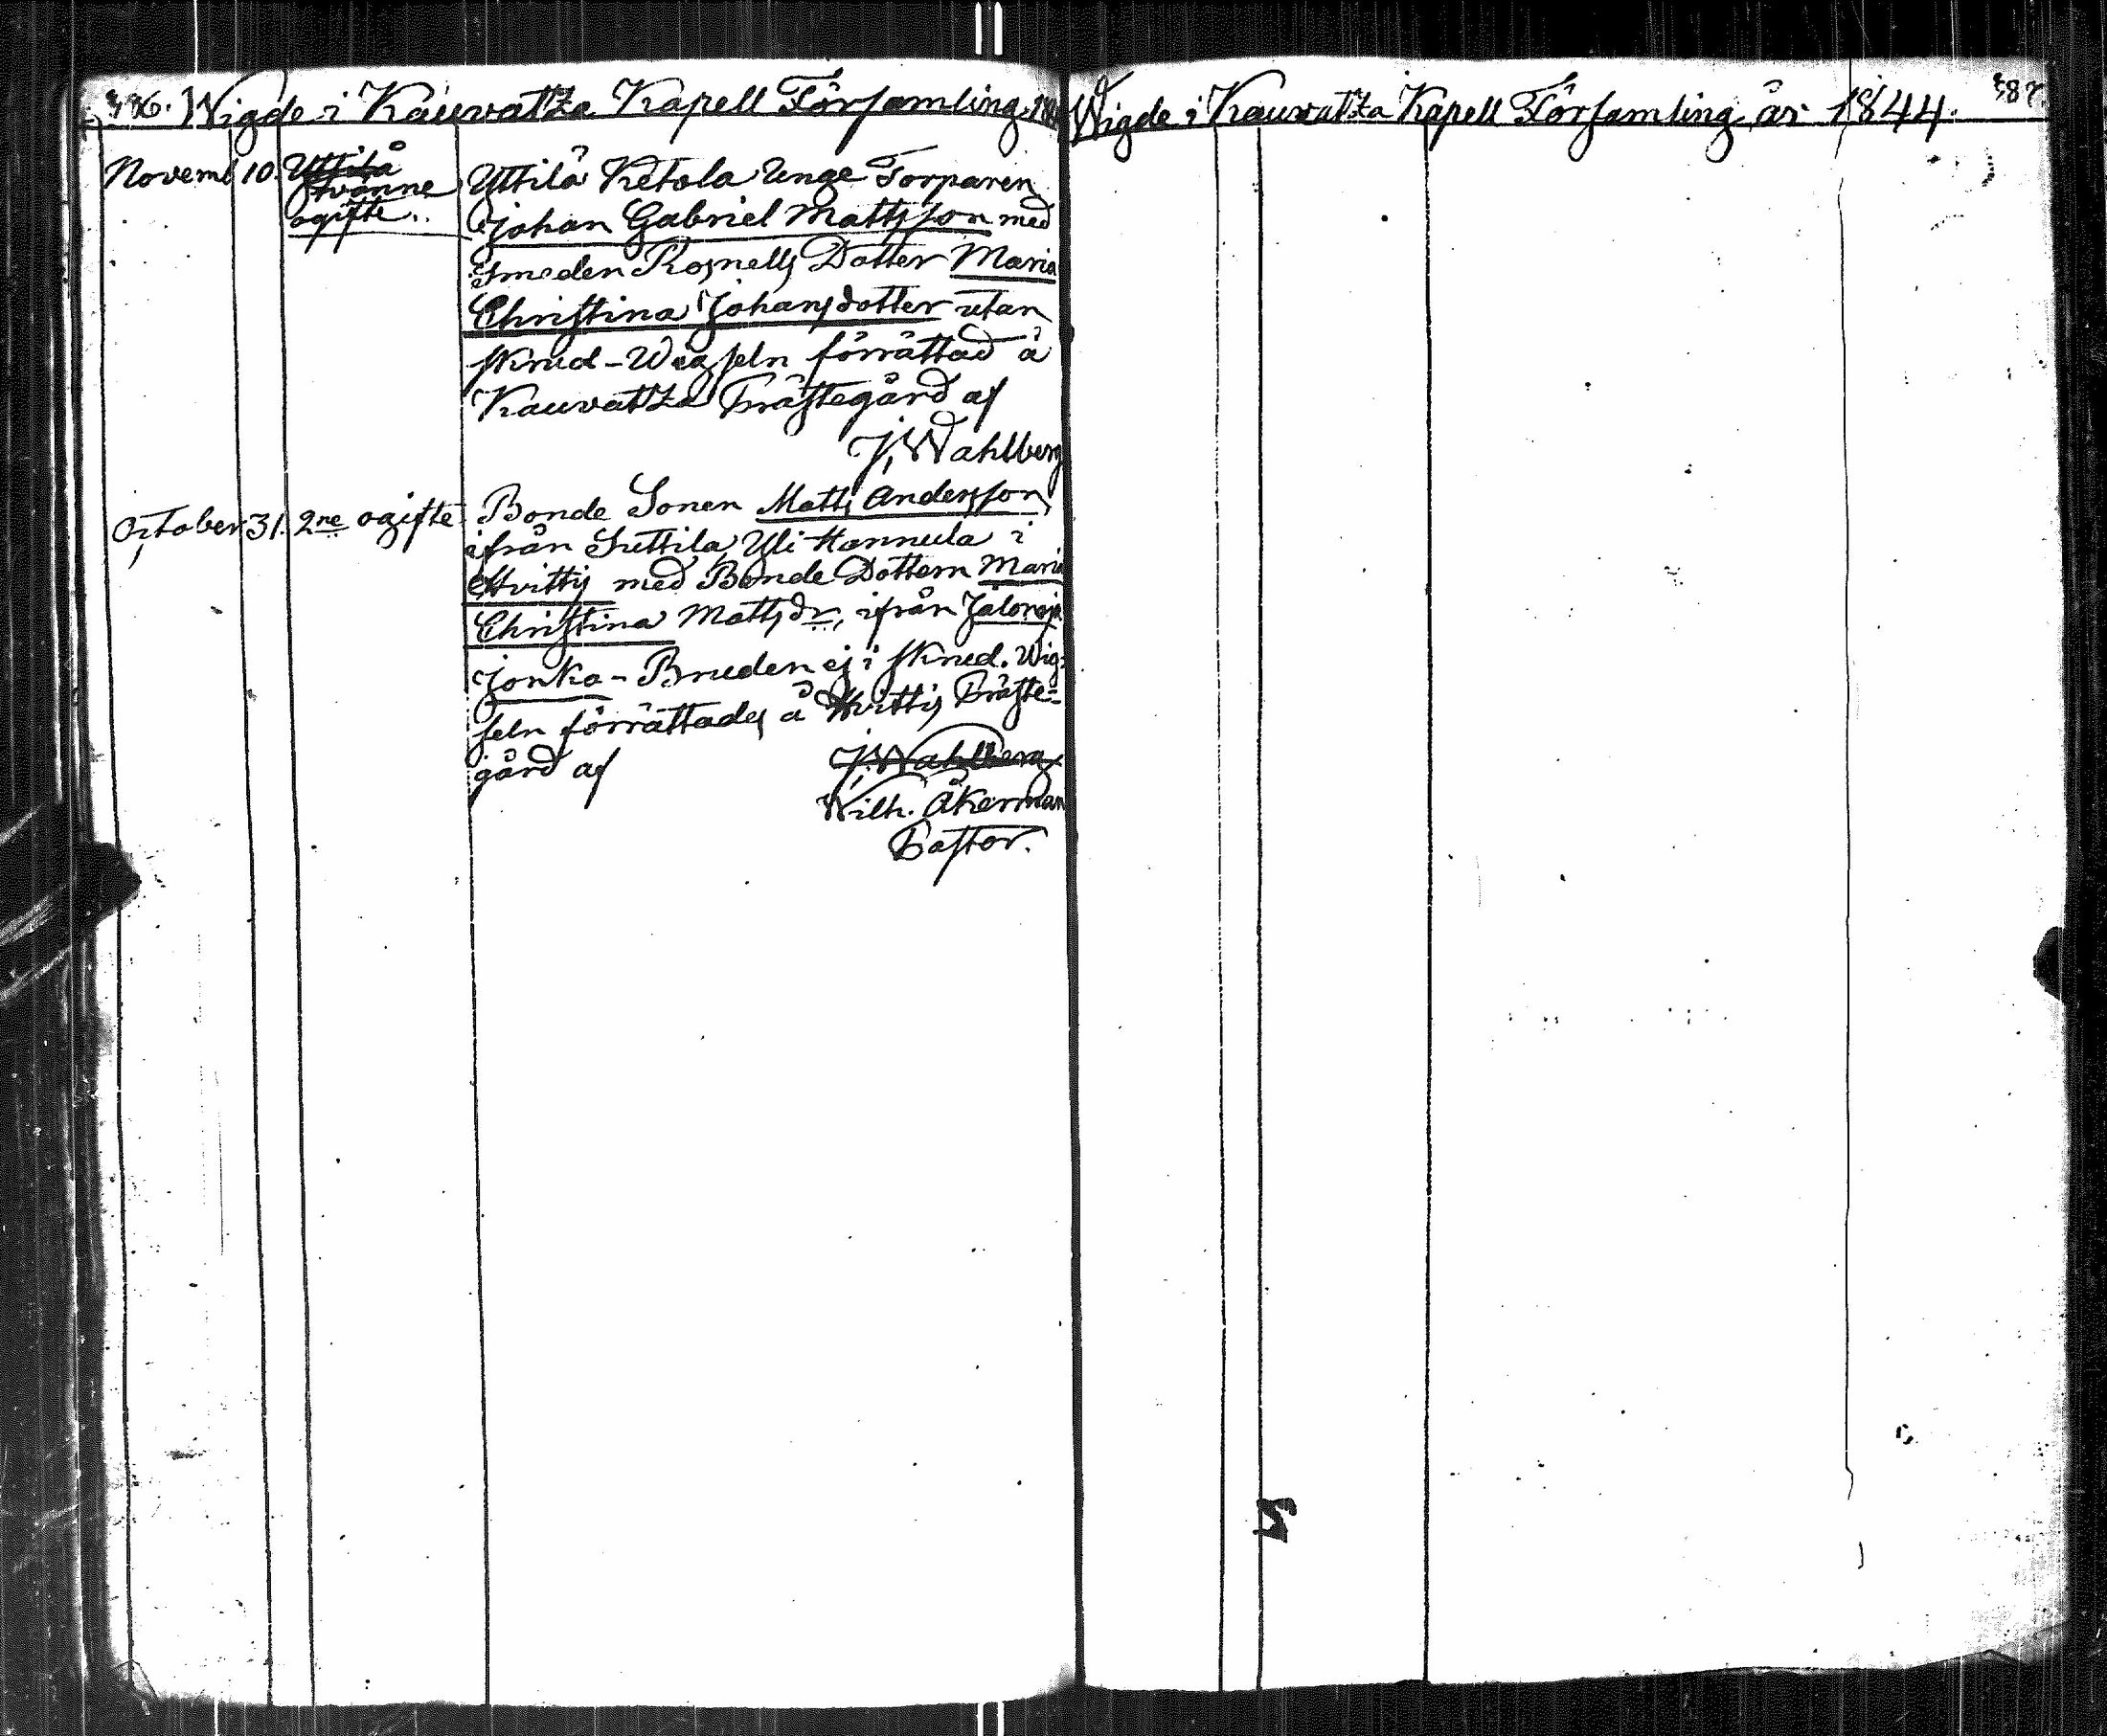 Wigde i Kauvatza Kapell Församling
Novemb 10. Uttilå
tvänne
ogifte..
Yttilä Ketola Unge Torparen
Johan Gabriel Mattsson med
Smeden Rosnells Dotter Maria
Christina Johansdotter utan
skrud - Wigseln förrättad å
Kauvatza Prästegård af
J, Wahlberg
October 31. 2ne ogifte.
Bonde Sonen Matts Andersson
ifrån Suttila Yli Hannula i
Hvittis med Bonde Dottern Maria
Christina Mattsdr, ifrån
Jonka - Bruden ej i skrud. Wig-
seln förrättades å Hvittis Präste-
gård af J. Wahlberg
Wilh. Åkerman
Pastor.
Wigde i Kauvatza Kapell Församling år 1844.